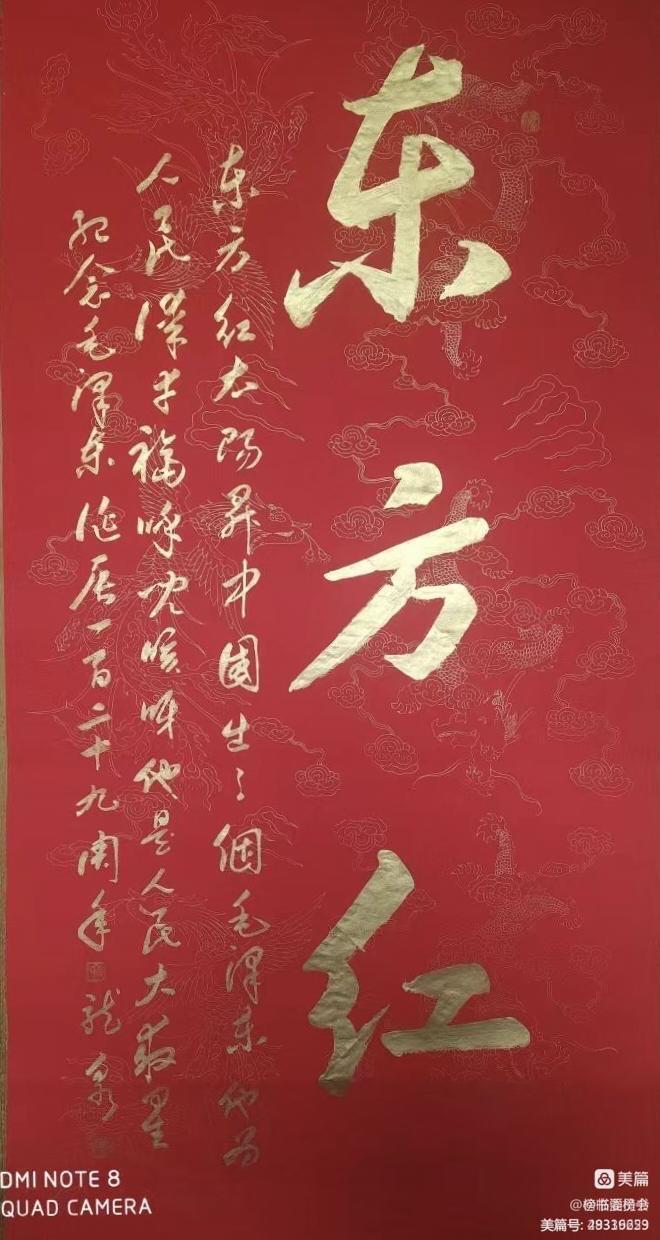 东方红
东方红太阳昇中國出了個毛泽东他为
人民谋幸福呼儿嗨呀他是人民大救星
纪念毛泽东诞辰一百二十九周年
龙泉
DMI NOTE 8
QUAD CAMERA
美篇
美篇号: